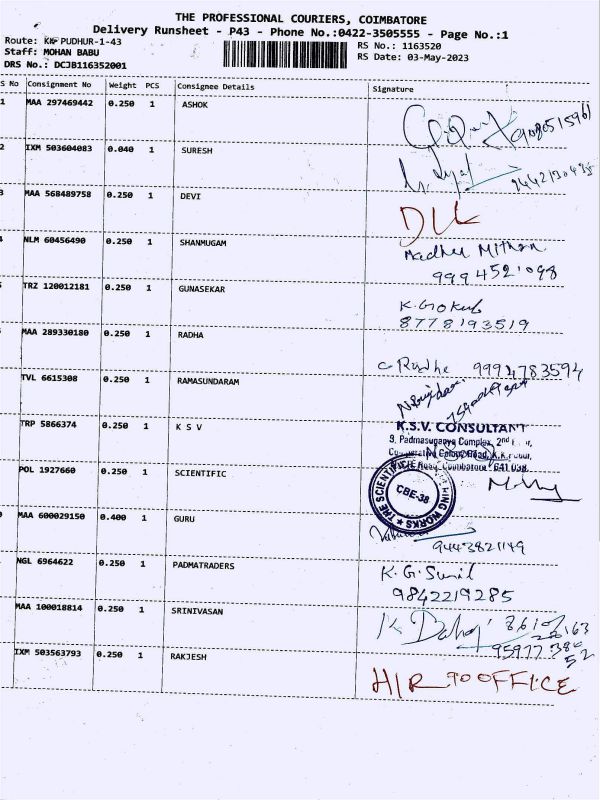 THE PROFESSIONAL COURIERS, COIMBATORE
Delivery Runsheet - P43 - Phone No.:0422-3505555 - Page No.:1
Route: KK PUDHUR-1-43
Staff: MOHAN BABU
DRS No.: DCJB116352001
RS No.: 1163520
RS Date: 03-May-2023
S No Consignment No Weight PCS Consignee Details Signature
1 MAA 297469442 0.250 1 ASHOK
2 IXM 503604083 0.040 1 SURESH
3 MAA 568489758 0.250 1 DEVI
4 NLM 60456490 0.250 1 SHANMUGAM Madhu Mithan
9994521098
TRZ 120012181 0.250 1 GUNASEKAR K. Gokul
8778193519
MAA 289330180 0.250 1 RADHA C. Radhe 9994783594
TVL 6615308 0.250 1 RAMASUNDARAM
TRP 5866374 0.250 1 K S V
K.S.V. CONSULTANT
9, Padmasuganya Complex, 2nd
Road, K.K.Pudur,
Coimbatore - 641 038.
POL 1927660 0.250 1 SCIENTIFIC
THE SCIENTIFIC WORKS
CBE-38
MAA 600029150 0.400 1 GURU
9443821149
NGL 6964622 0.250 1 PADMATRADERS K. G. Sunil
9842219285
MAA 100018814 0.250 1 SRINIVASAN
IXM 503563793 0.250 1 RAKJESH H/R TO OFFICE